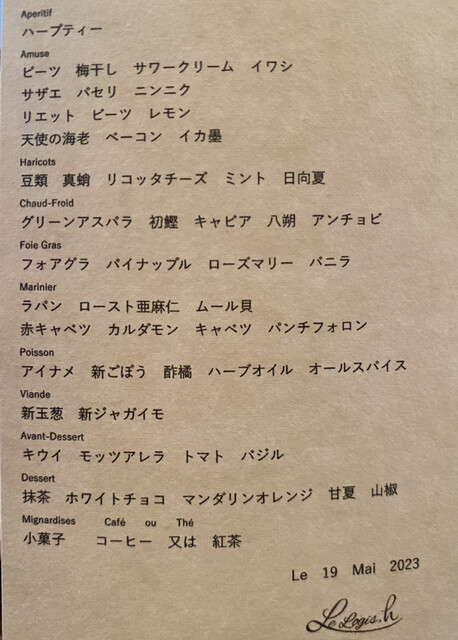 Aperitif
ハーブティー
Amuse
ビーツ 梅干し サワークリーム イワシ
サザエ パセリ ニンニク
リエット ビーツ レモン
天使の海老 ベーコン イカ墨
Haricots
豆類 真蛸 リコッタチーズ ミント 日向夏
Chaud-Froid
グリーンアスパラ 初鰹 キャビア 八朔 アンチョビ
Foie Gras
フォアグラ パイナップル ローズマリー バニラ
Marinier
ラパン ロースト亜麻仁 ムール貝
赤キャベツ カルダモン キャベツ パンチフォロン
Poisson
アイナメ 新ごぼう 酢橘 ハーブオイル オールスパイス
Viande
新玉葱 新ジャガイモ
Avant-Dessert
キウイ モッツアレラ トマト バジル
Dessert
抹茶 ホワイトチョコ マンダリンオレンジ 甘夏 山椒
Mignardises Café ou Thé
小菓子 コーヒー 又は 紅茶
Le 19 Mai 2023
Le Logis.h